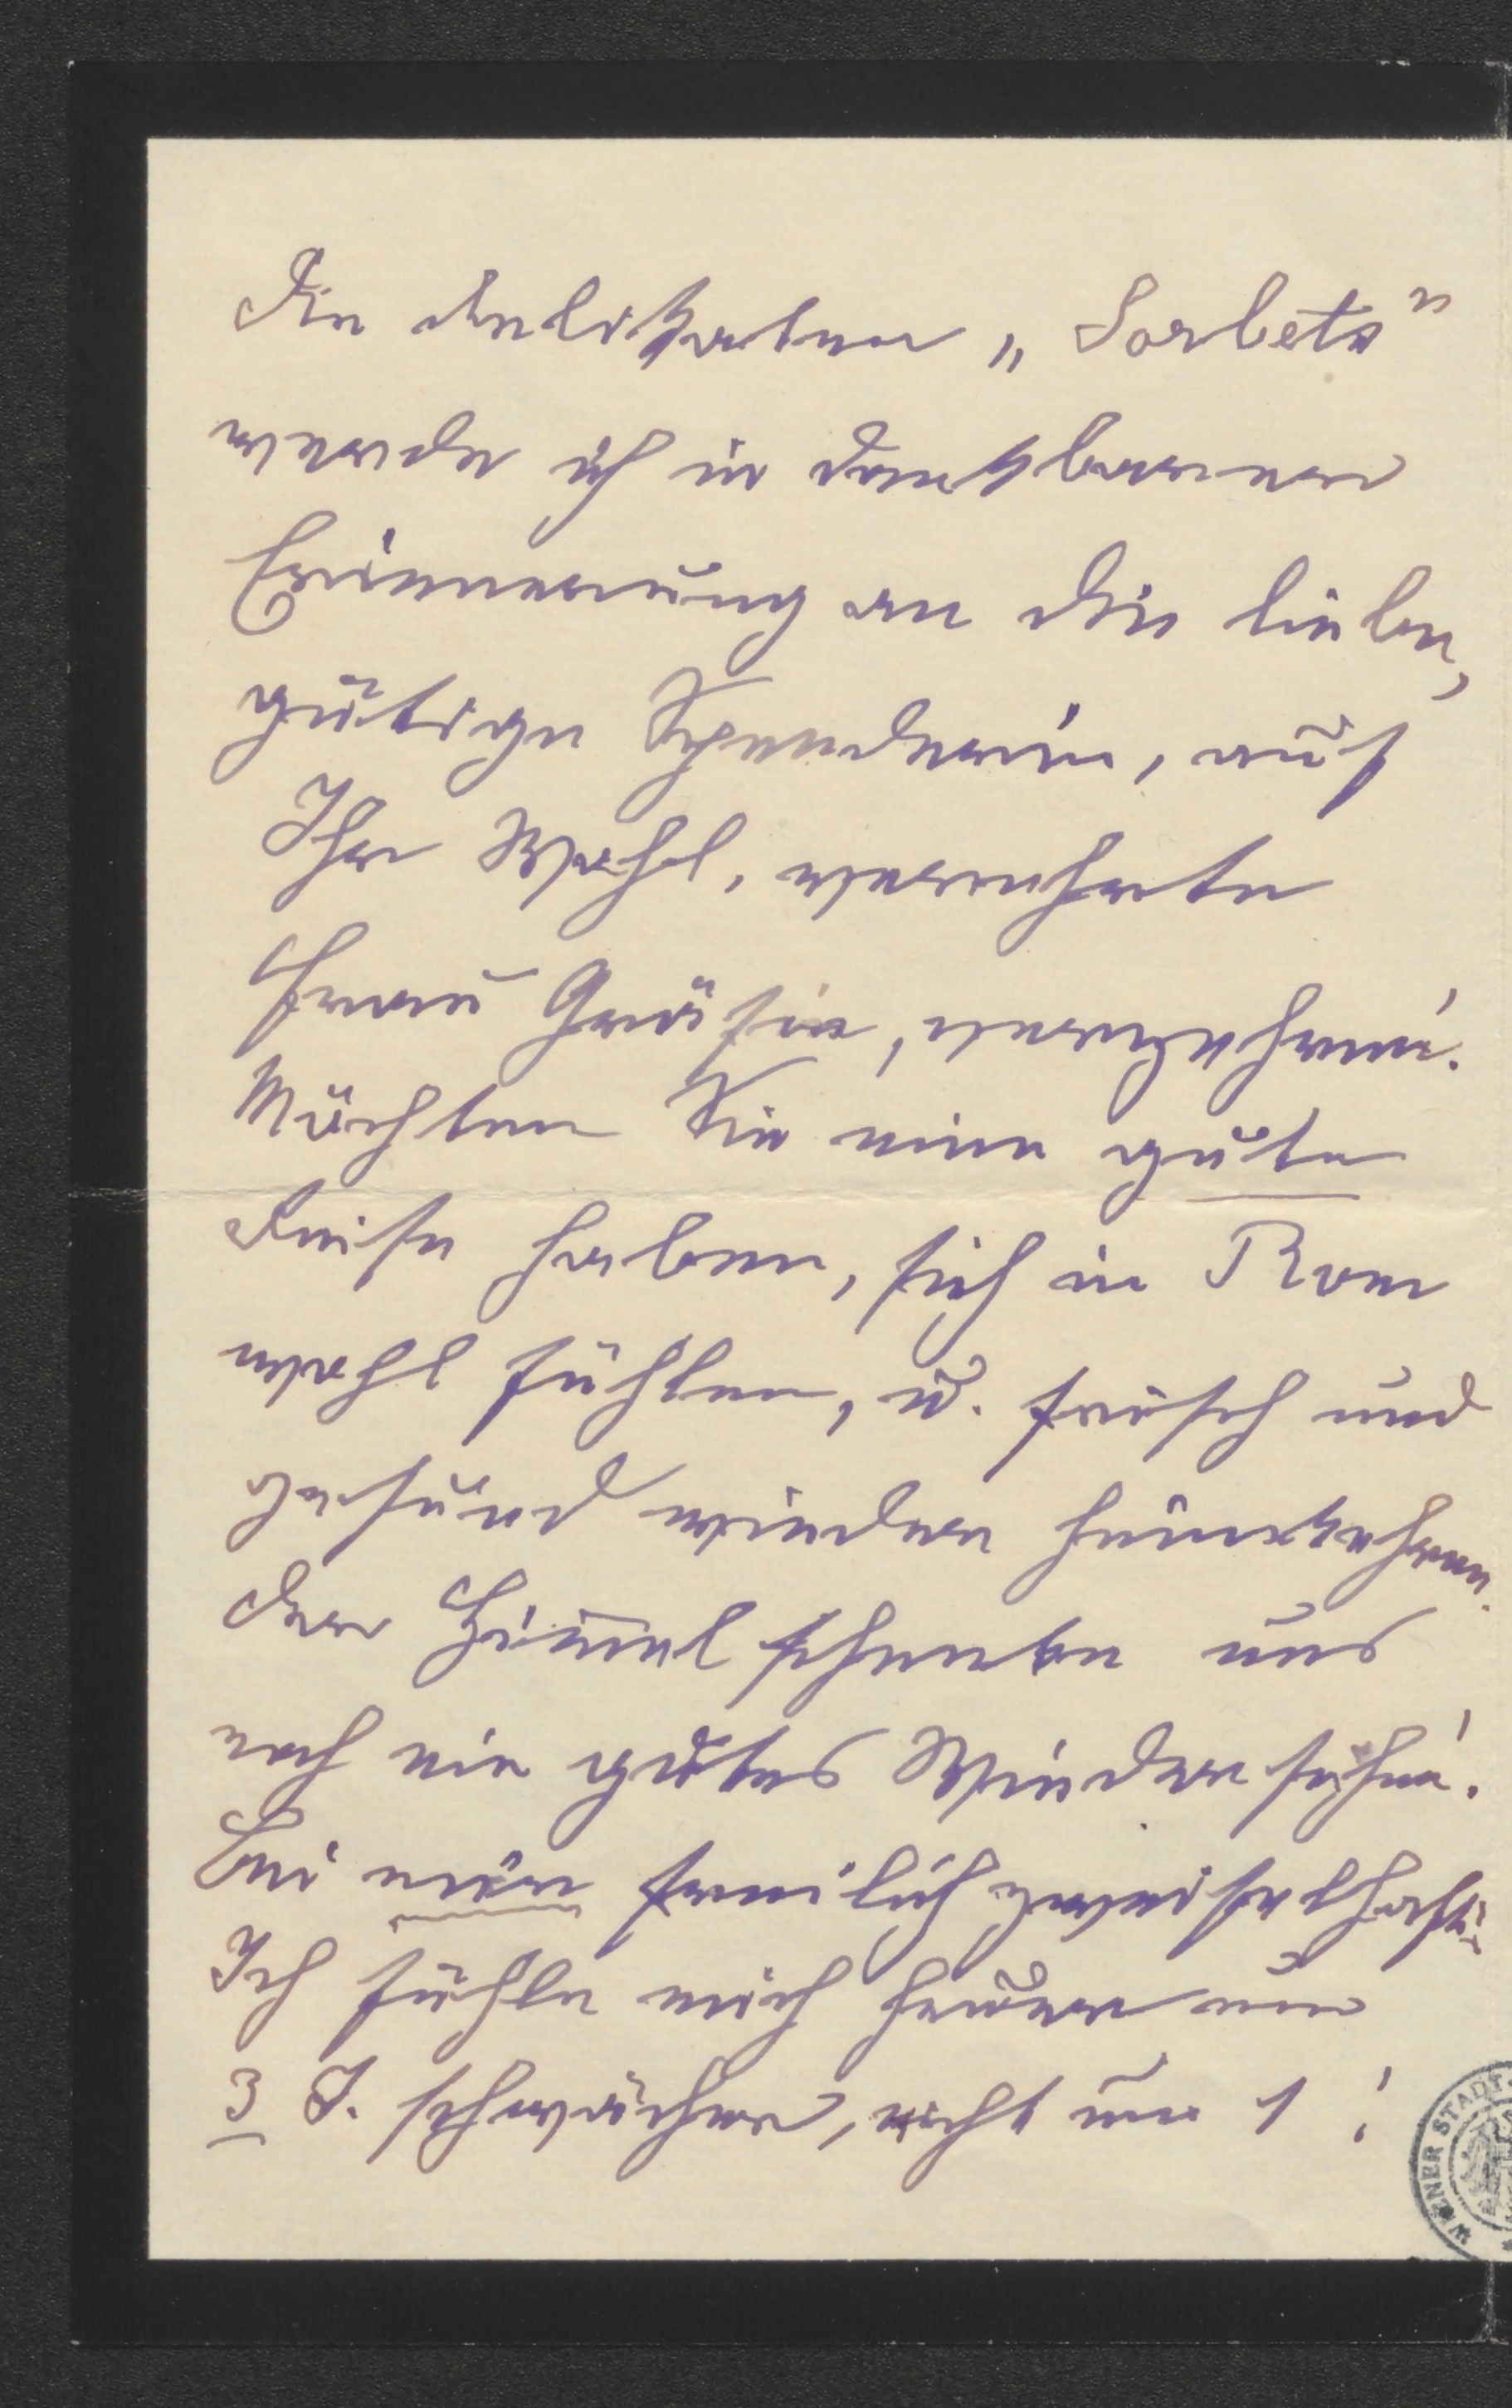 Die delikaten „Sorbets"
werde ich in dankbarer
Erinnerung an die liebe,
gütige Spenderin, auf
Ihr Wohl, verehrte
Frau Gräfin, verzehren!
Möchten Sie eine gute
Reise haben, sich in Rom
wohl fühlen, u. frisch und
gesund wieder heimkehren.
Der Himel schenke uns
noch ein gutes Wiedersehen!
Bei mir freilich zweifelhaft;
Ich fühle mich heuer um
3 J. schwächer, nicht um 1!
WIENER STADT-